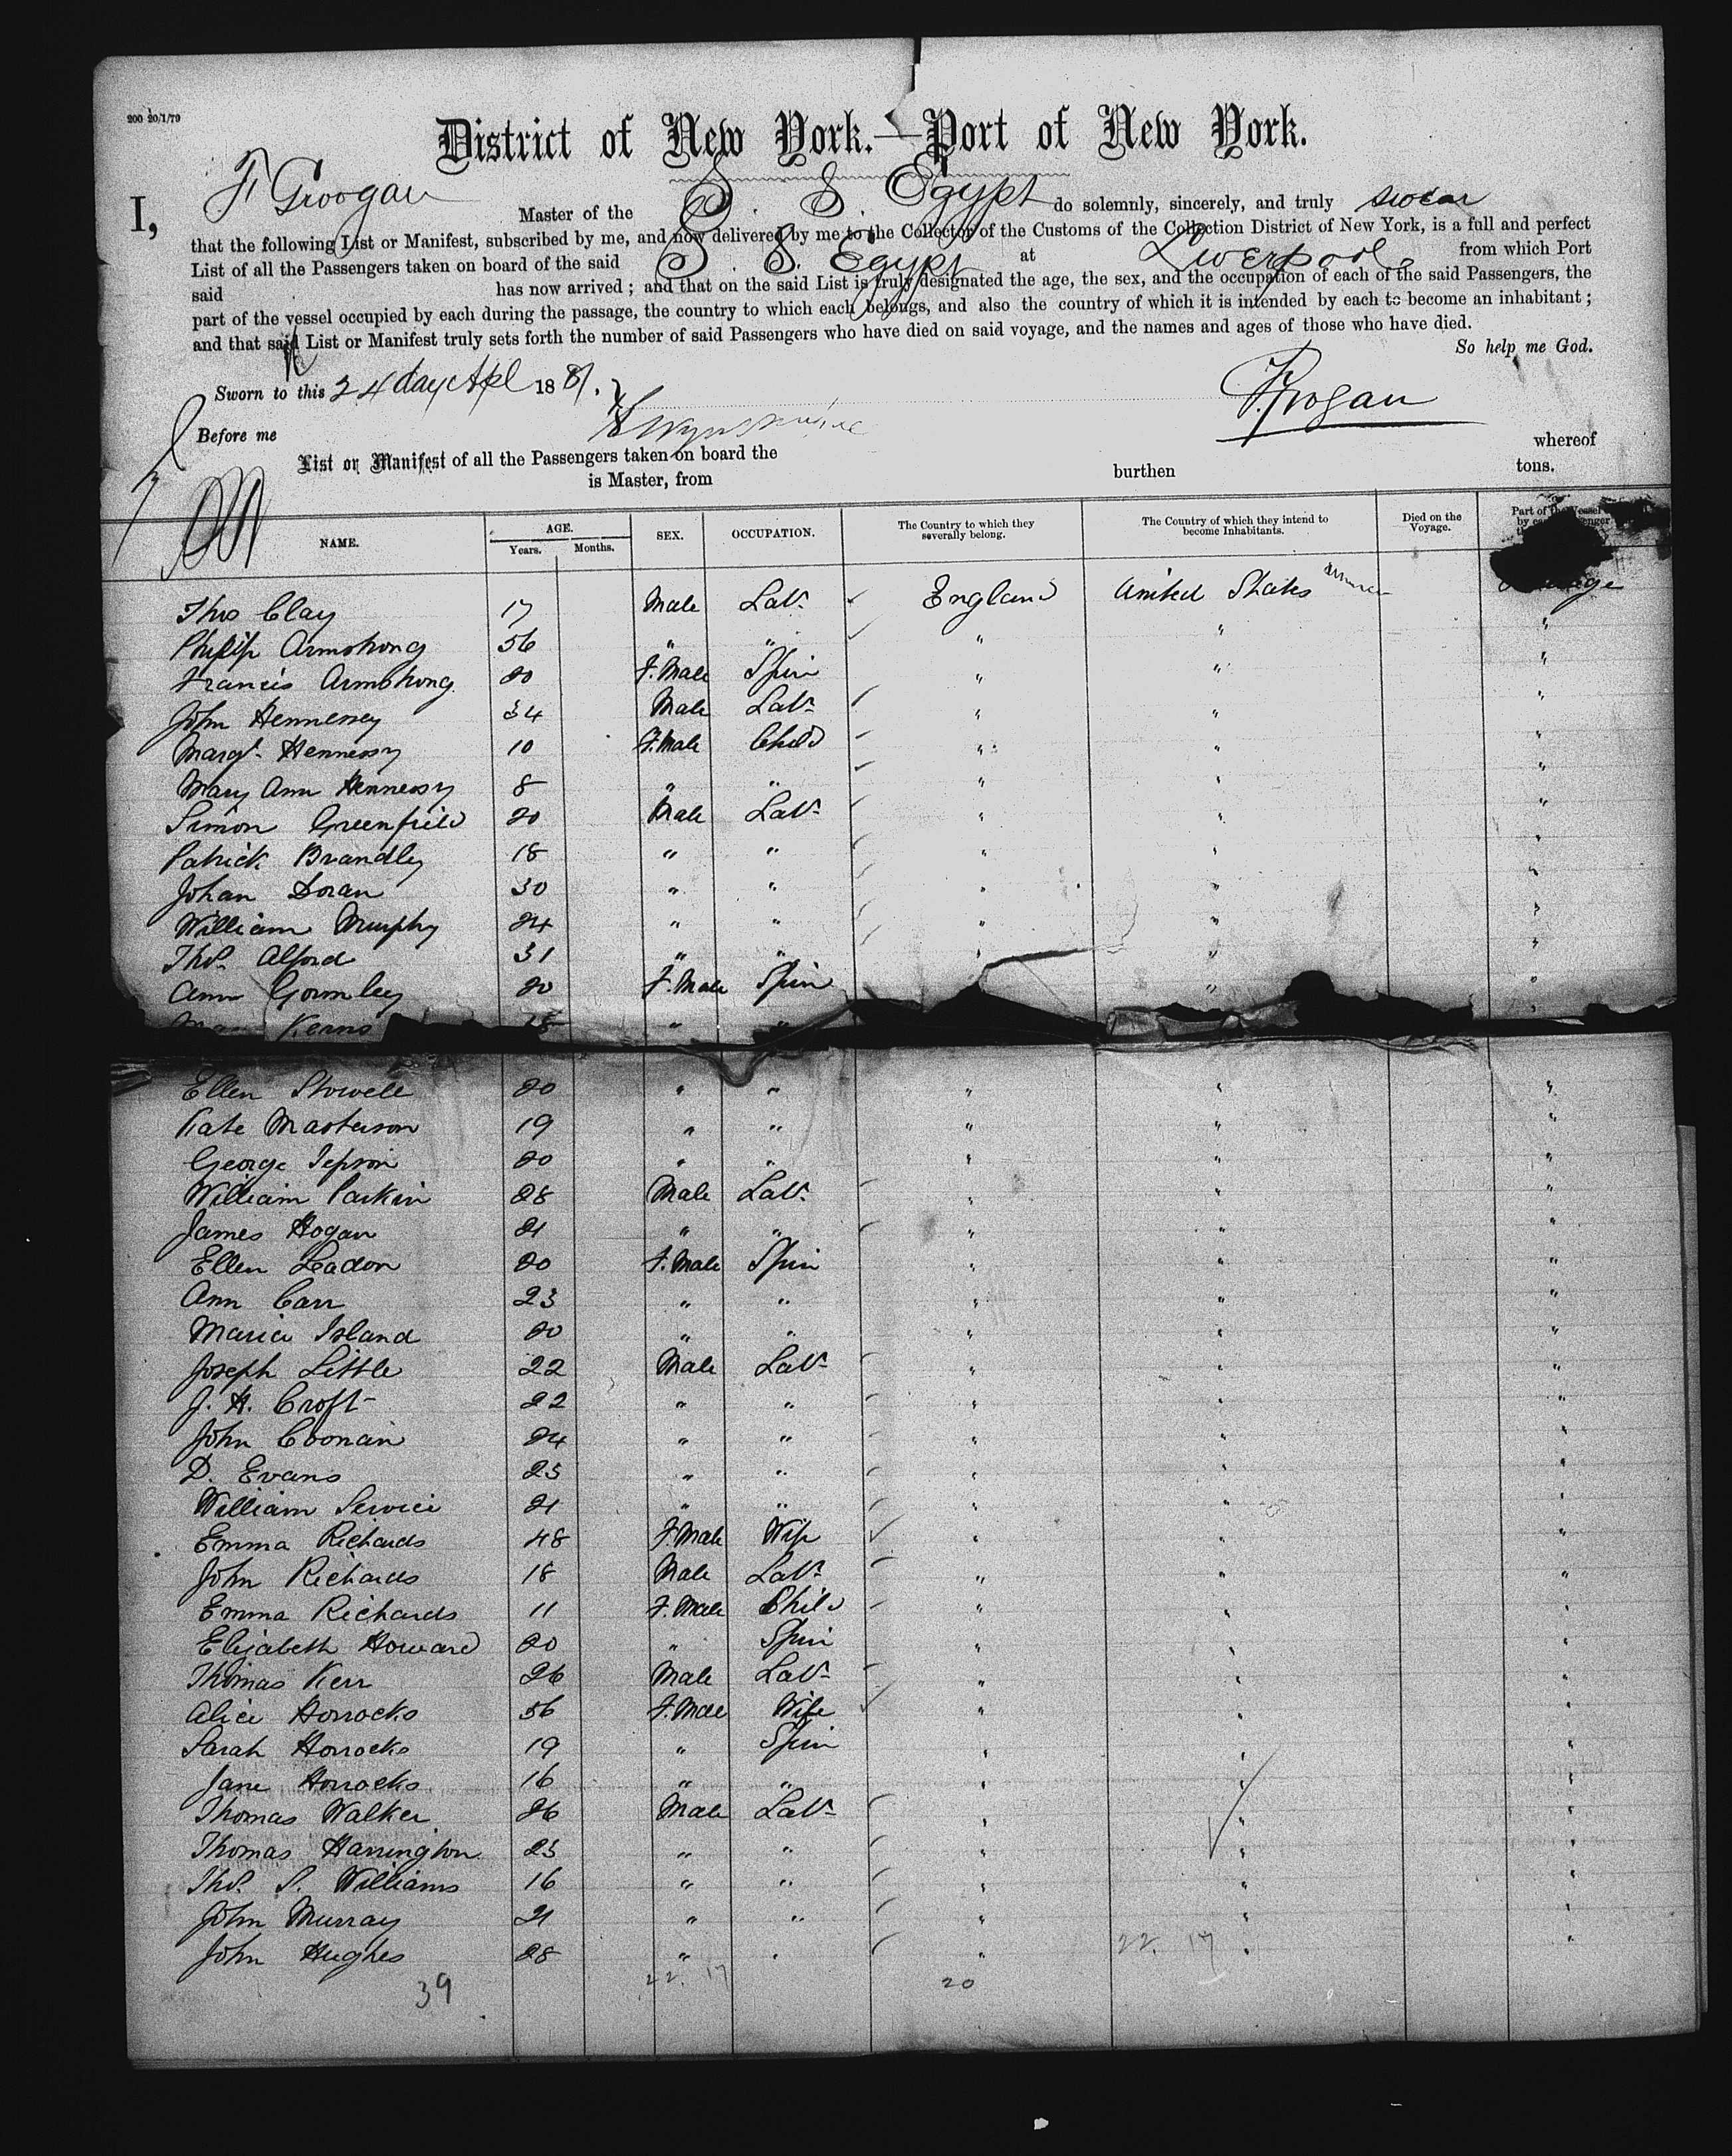 200 20/1/79
District of New York.—Port of New York.
I, F Grogan Master of the S. S. Egypt do solemnly, sincerely, and truly swear
that the following List or Manifest, subscribed by me, and now delivered by me to the Collector of the Customs of the Collection District of New York, is a full and perfect
List of all the Passengers taken on board of the said S. S. Egypt at Liverpool from which Port
said has now arrived; and that on the said List is truly designated the age, the sex, and the occupation of each of the said Passengers, the
part of the vessel occupied by each during the passage, the country to which each belongs, and also the country of which it is intended by each to become an inhabitant;
and that said List or Manifest truly sets forth the number of said Passengers who have died on said voyage, and the names and ages of those who have died.
So help me God.
Sworn to this 24 day Apl 1881. F. Grogan
Before me
List or Manifest of all the Passengers taken on board the whereof
is Master, from burthen tons.
NAME. AGE. Years. Months. SEX. OCCUPATION. The Country to which they severally belong. The Country of which they intend to become Inhabitants. Died on the Voyage. Part of the Vessel
Thos Clay 17 Male Labr England United States
Philip Armstrong 56 " " " " "
Francis Armstrong 20 F.Male Spin " " "
John Hennessey 34 Male Labr " " "
Margt Hennessy 10 F.Male Child " " "
Mary Ann Hennessy 8 " " " " "
Simon Greenfield 20 Male Labr " " "
Patrick Brandley 18 " " " " "
Johan Doran 30 " " " " "
William Murphy 24 " " " " "
Thos. Alford 31 " " " " "
Ann Gormley 20 F.Male Spin " "
Kerns " " "
Ellen Stowell 20 " " " " "
Kate Masterson 19 " " " " "
George Jepson 20 " " " " "
William Parkin 28 Male Labr " " "
James Hogan 21 " " " " "
Ellen Leadon 20 F.Male Spin " " "
Ann Carr 23 " " " " "
Maria Island 20 " " " " "
Joseph Little 22 Male Labr " " "
J. H. Croft 22 " " " " "
John Coonan 24 " " " " "
D. Evans 25 " " " " "
William Service 21 " " " " "
Emma Richards 48 F.Male Wife " " "
John Richards 18 Male Labr " " "
Emma Richards 11 F.Male Child " " "
Elizabeth Howard 20 " Spin " " "
Thomas Kerr 26 Male Labr " " "
Alice Horrocks 56 F.Male Wife " " "
Sarah Horrocks 19 " Spin " " "
Jane Horrocks 16 " " " " "
Thomas Walker 26 Male Labr " " "
Thomas Harrington 23 " " " " "
Thos. S. Williams 16 " " " " "
John Murray 21 " " " " "
John Hughes 28 " " " 22. 17 " "
39 22. 17 20